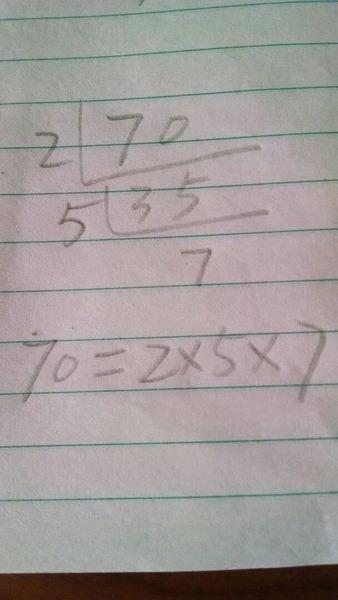 2 70
5 35
7
70=2×5×7